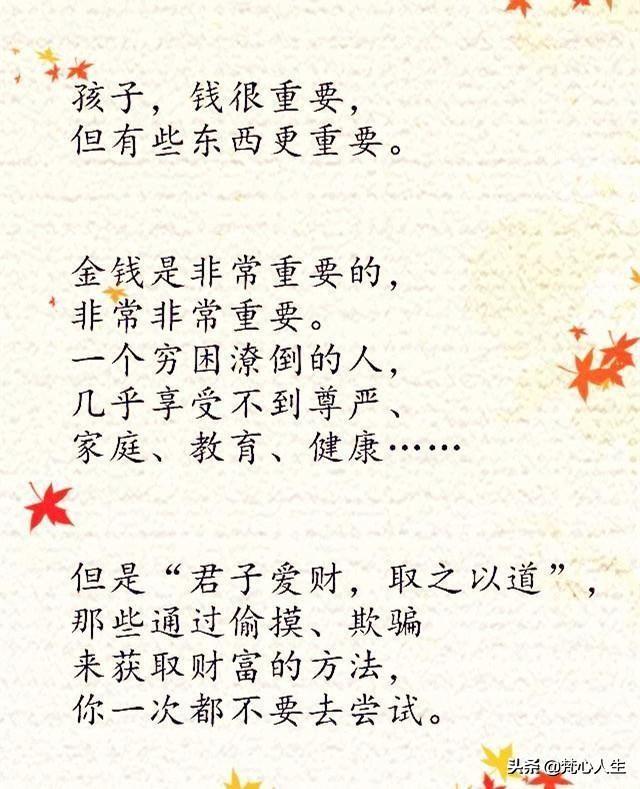 孩子，钱很重要，
但有些东西更重要。
金钱是非常重要的，
非常非常重要。
一个穷困潦倒的人，
几乎享受不到尊严、
家庭、教育、健康……
但是“君子爱财，取之以道”，
那些通过偷摸、欺骗
来获取财富的方法，
你一次都不要去尝试。
头条 @梵心人生